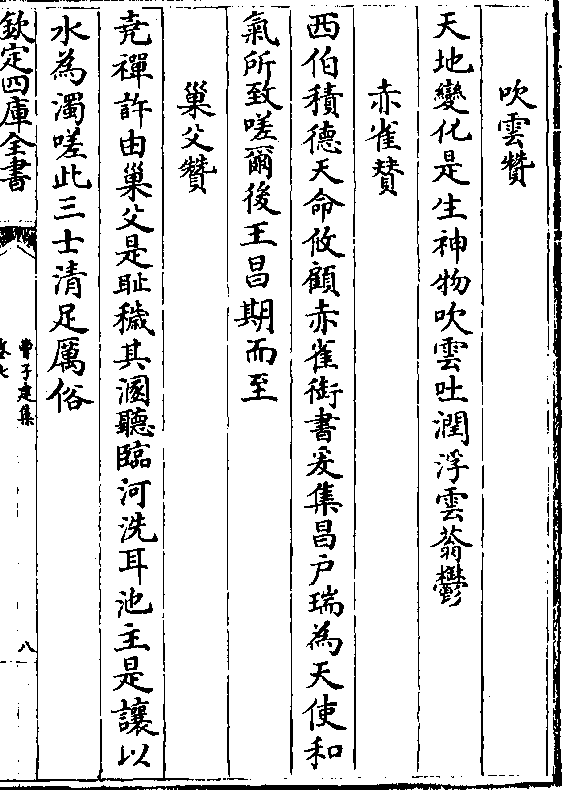 吹雲贊
天地變化是生神物吹雲吐潤浮雲蓊鬱
赤雀贊
西伯積德天命攸顧赤雀銜書爰集昌户瑞為天使和
氣所致嗟爾後王昌期而至
巢父贊
堯禪許由巢父是耻穢其溷聽臨河洗耳池主是讓以
水為濁嗟此三士清足厲俗
欽定四庫全書
曹子建集
卷七
八